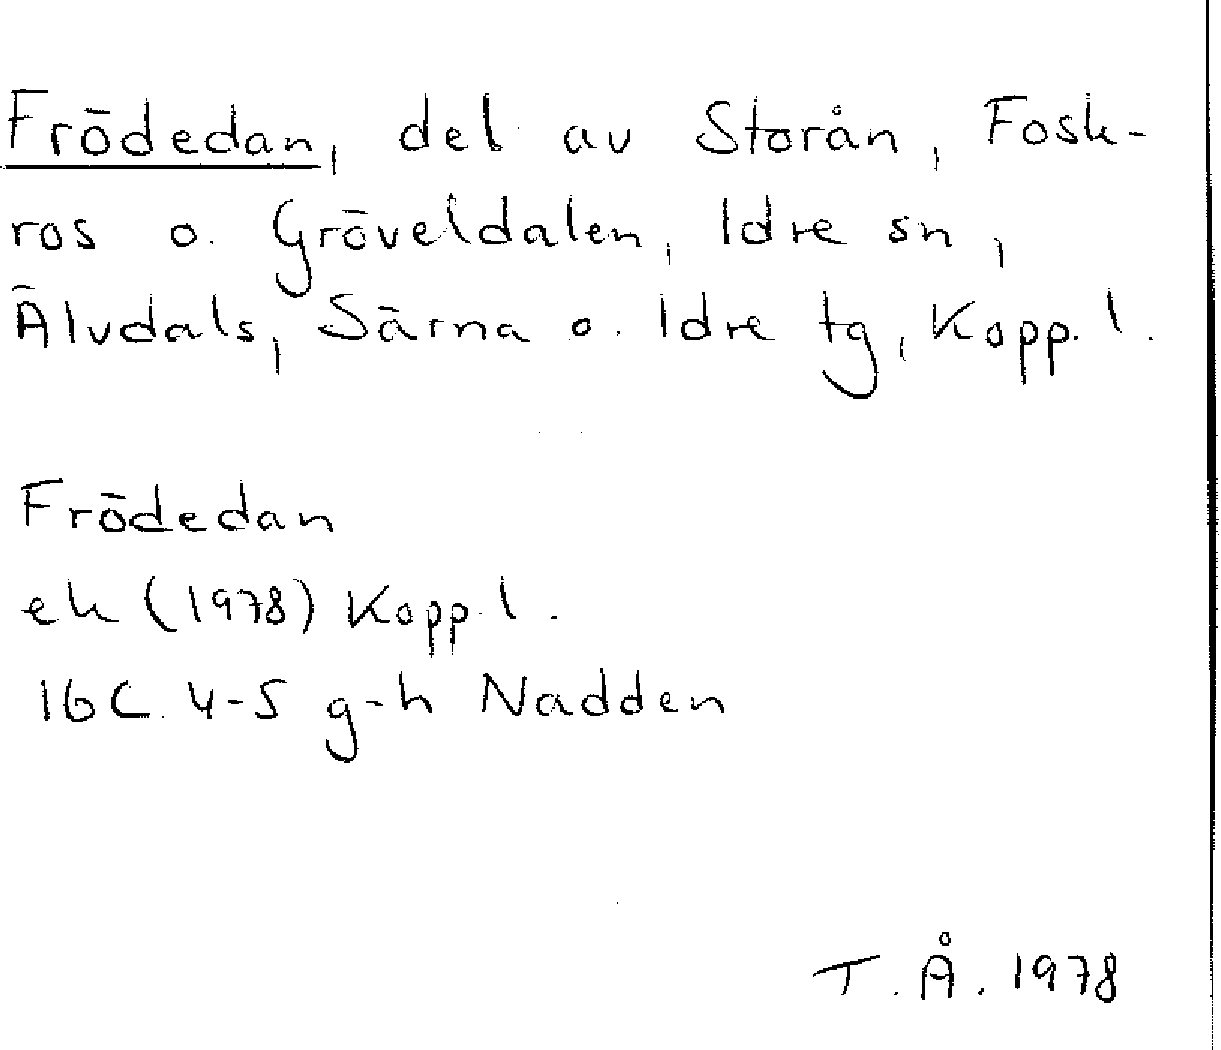 Frödedan, del av Storån, Fosk-
ros o. Gröveldalen, Idre sn,
Älvdals, Särna o. Idre tg, Kopp. l.
Frödedan
ek (1978) Kopp. l.
16C. 4-5 g-h Nadden
T. Å. 1978